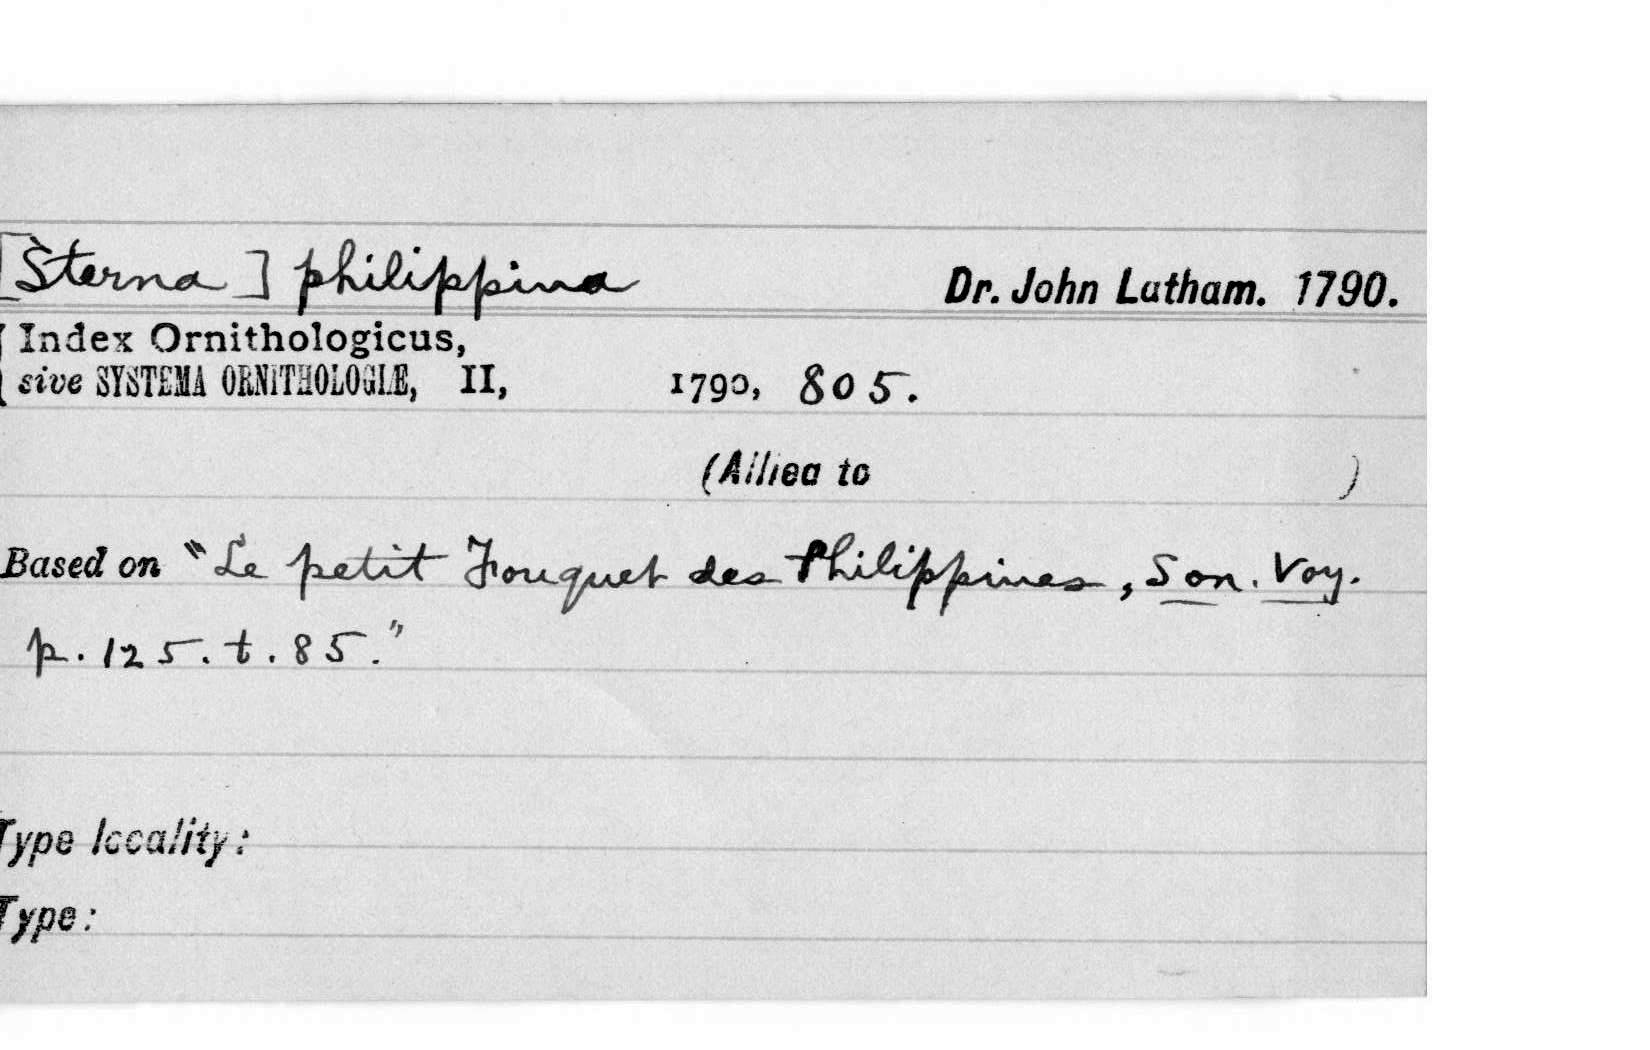 [Sterna] philippina Dr. John Latham. 1790.
Index Ornithologicus,
sive SYSTEMA ORNITHOLOGIÆ, II, 1790, 805.
(Allied to )
Based on "Le petit Fouquet des Philippines, Son. Voy.
p. 125. t. 85."
Type locality:
Type: